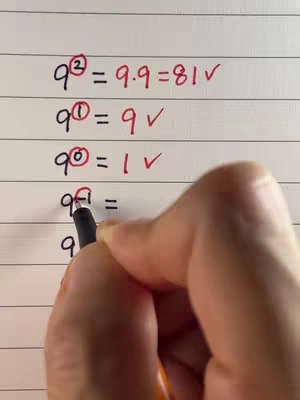 9² = 9.9 = 81 ✓
9¹ = 9 ✓
9⁰ = 1 ✓
9⁻¹ =
9